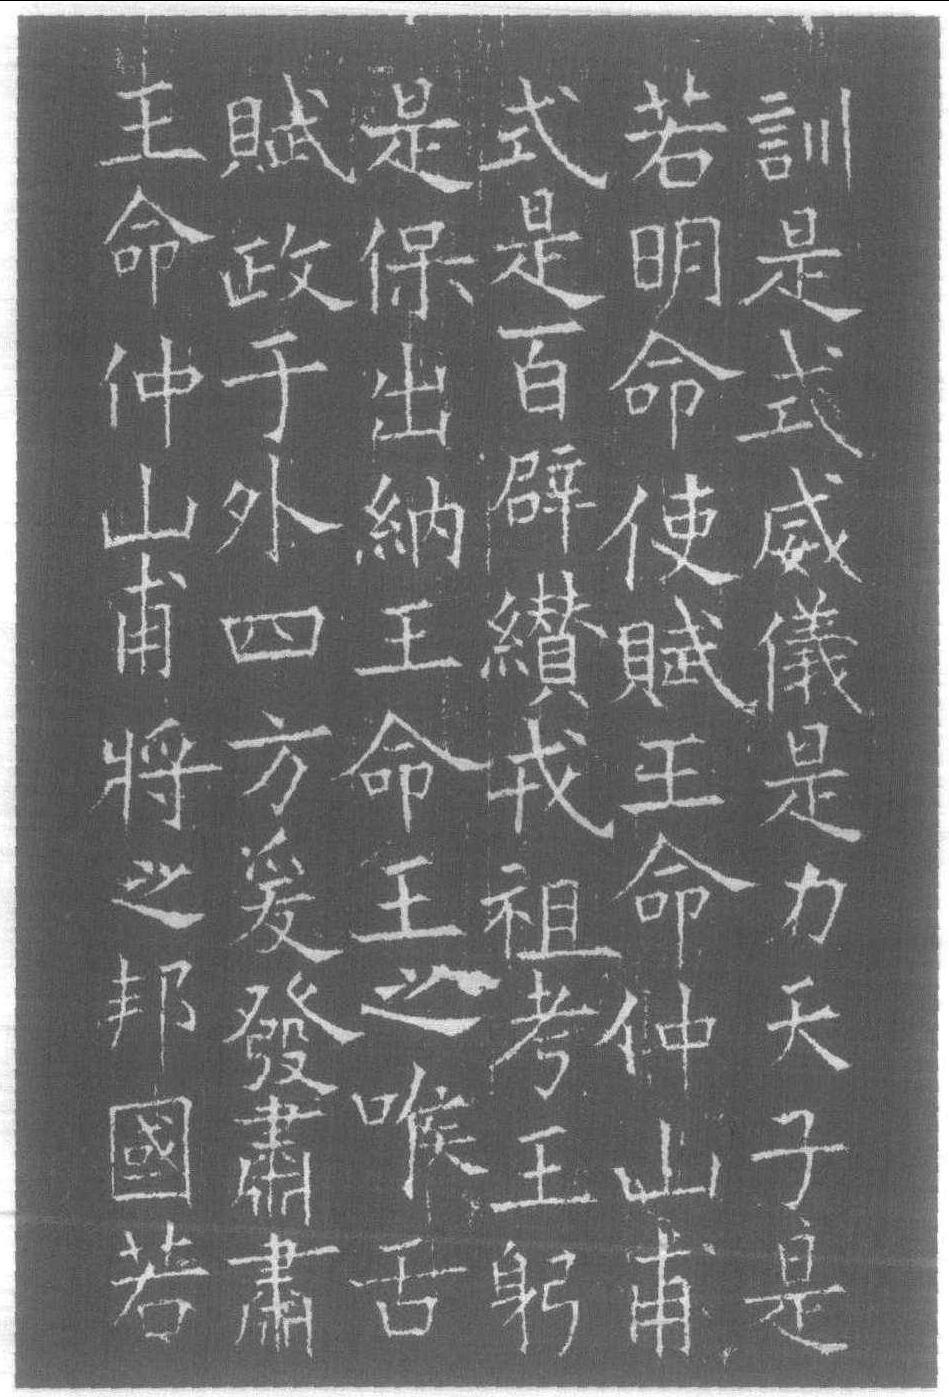 訓是式威儀是力天子是
若明命使賦王命仲山甫
式是百辟纘戎祖考王躬
是保出納王命王之喉舌
賦政于外四方爰發肅肅
王命仲山甫將之邦國若